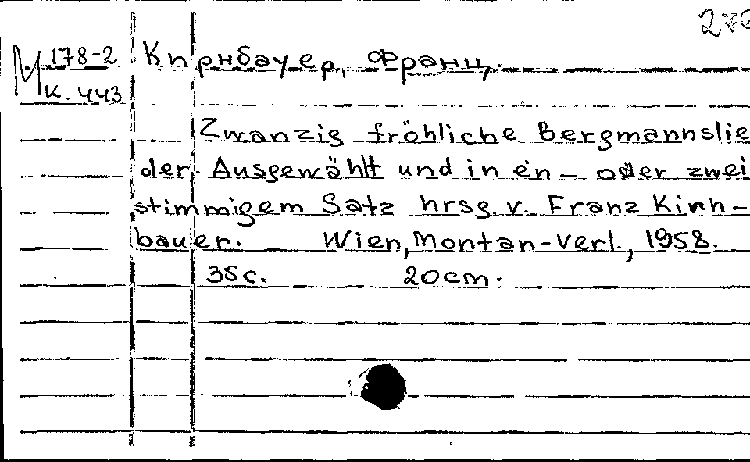 M 178-2 Кирнбауер, Франц.
К. 443
Zwanzig fröhliche Bergmannslie
der. Ausgewählt und in ein- oder zwei
stimmigem Satz hrsg. v. Franz Kirn-
bauer. Wien, Montan-Verl., 1958.
38 с. 20 cm.